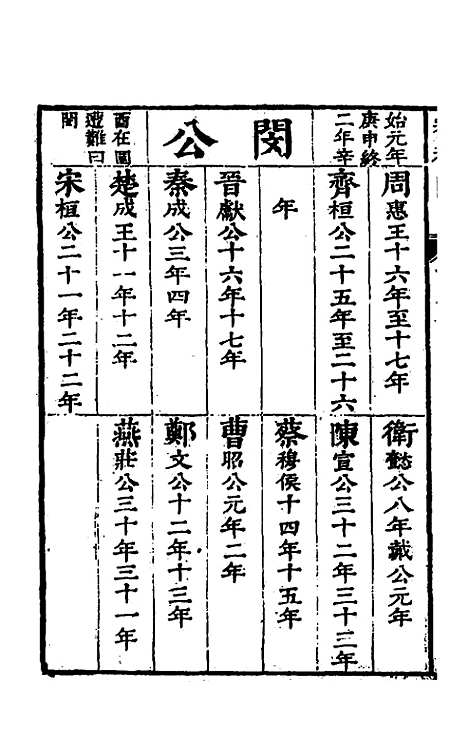 始元年
庚申終
二年辛
閔公
酉在國
遭難曰
閔
周惠王十六年至十七年
齊桓公二十五年至二十六
年
晉獻公十六年十七年
秦成公三年四年
楚成王十一年十二年
宋桓公二十一年二十二年
衛懿公八年戴公元年
陳宣公三十二年三十三年
蔡穆侯十四年十五年
曹昭公元年二年
鄭文公十二年十三年
燕莊公三十年三十一年